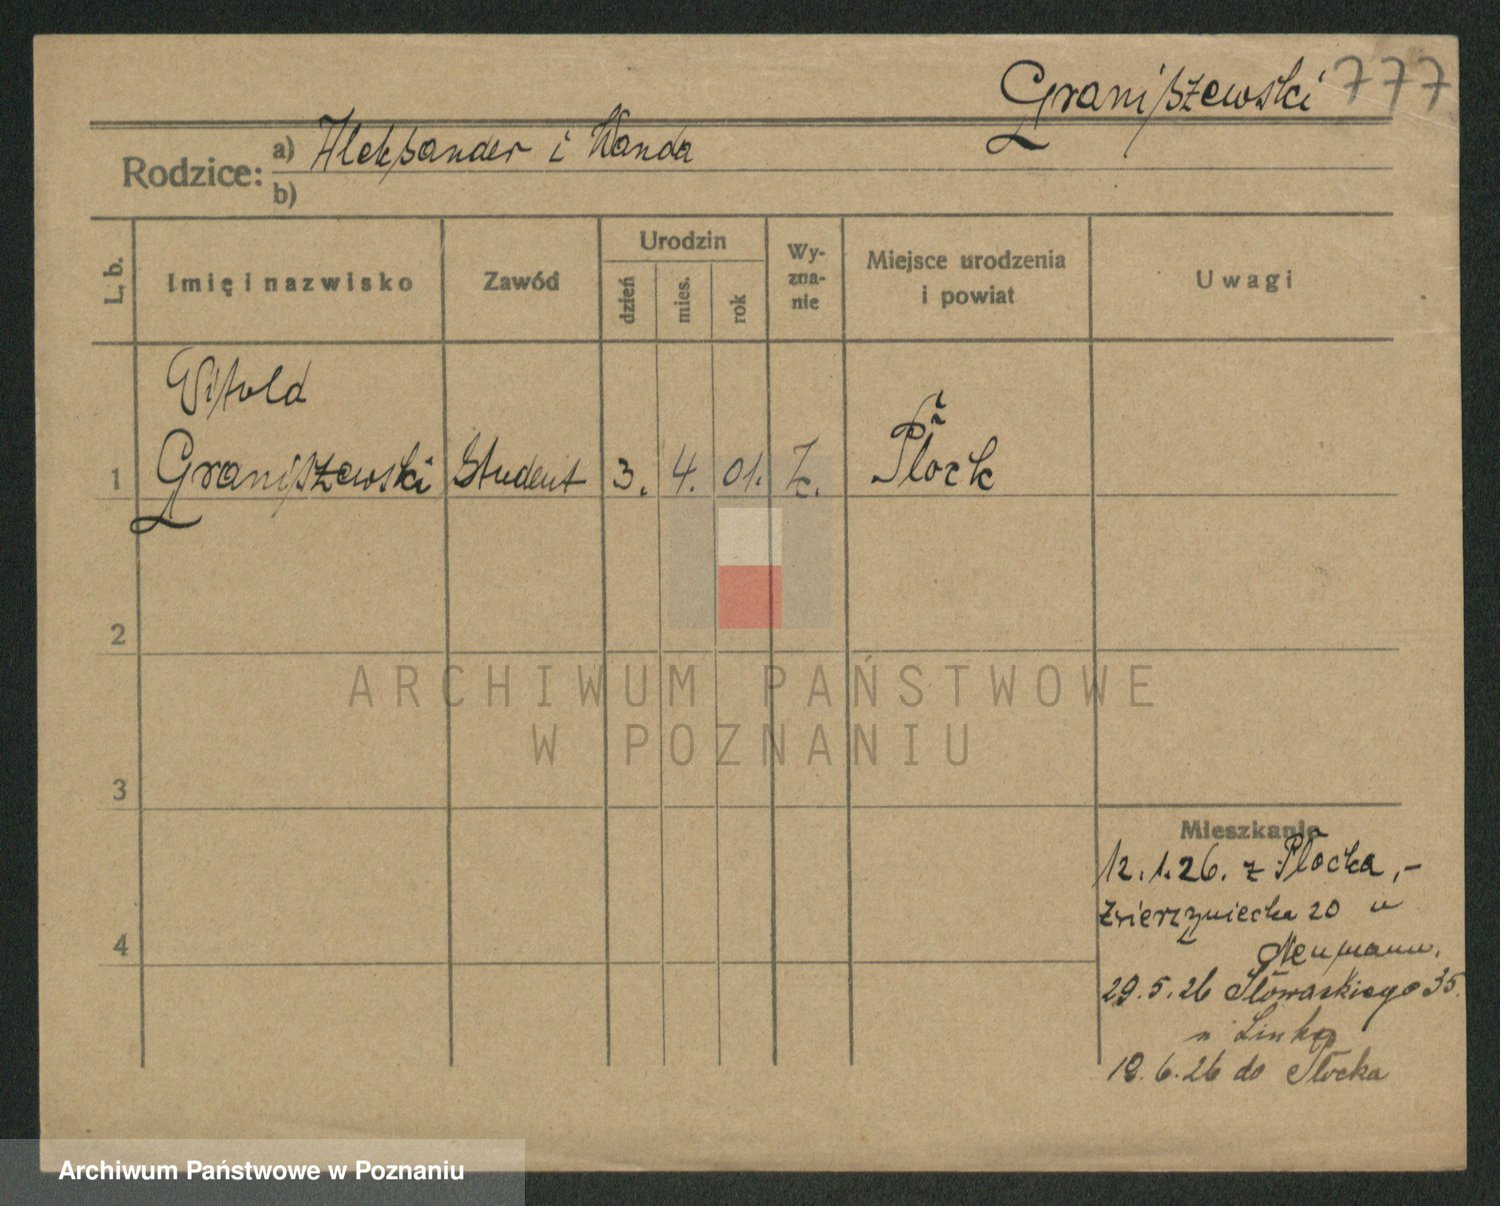 Graniszewski 777
Rodzice: a) Aleksander i Wanda
b)
L. b. Imię i nazwisko Zawód Urodzin dzień mies. rok Wyzna-nie Miejsce urodzenia i powiat Uwagi
Witold
1 Graniszewski Student 3. 4. 01. k. Płock
2
ARCHIWUM PAŃSTWOWE
W POZNANIU
3
Mieszkanie
12.1.26. z Płocka,-
Zwierzyniecka 20 u
4
Neumann.
29.5.26 Słowackiego 35.
u
19.6.26 do Płocka
Archiwum Państwowe w Poznaniu